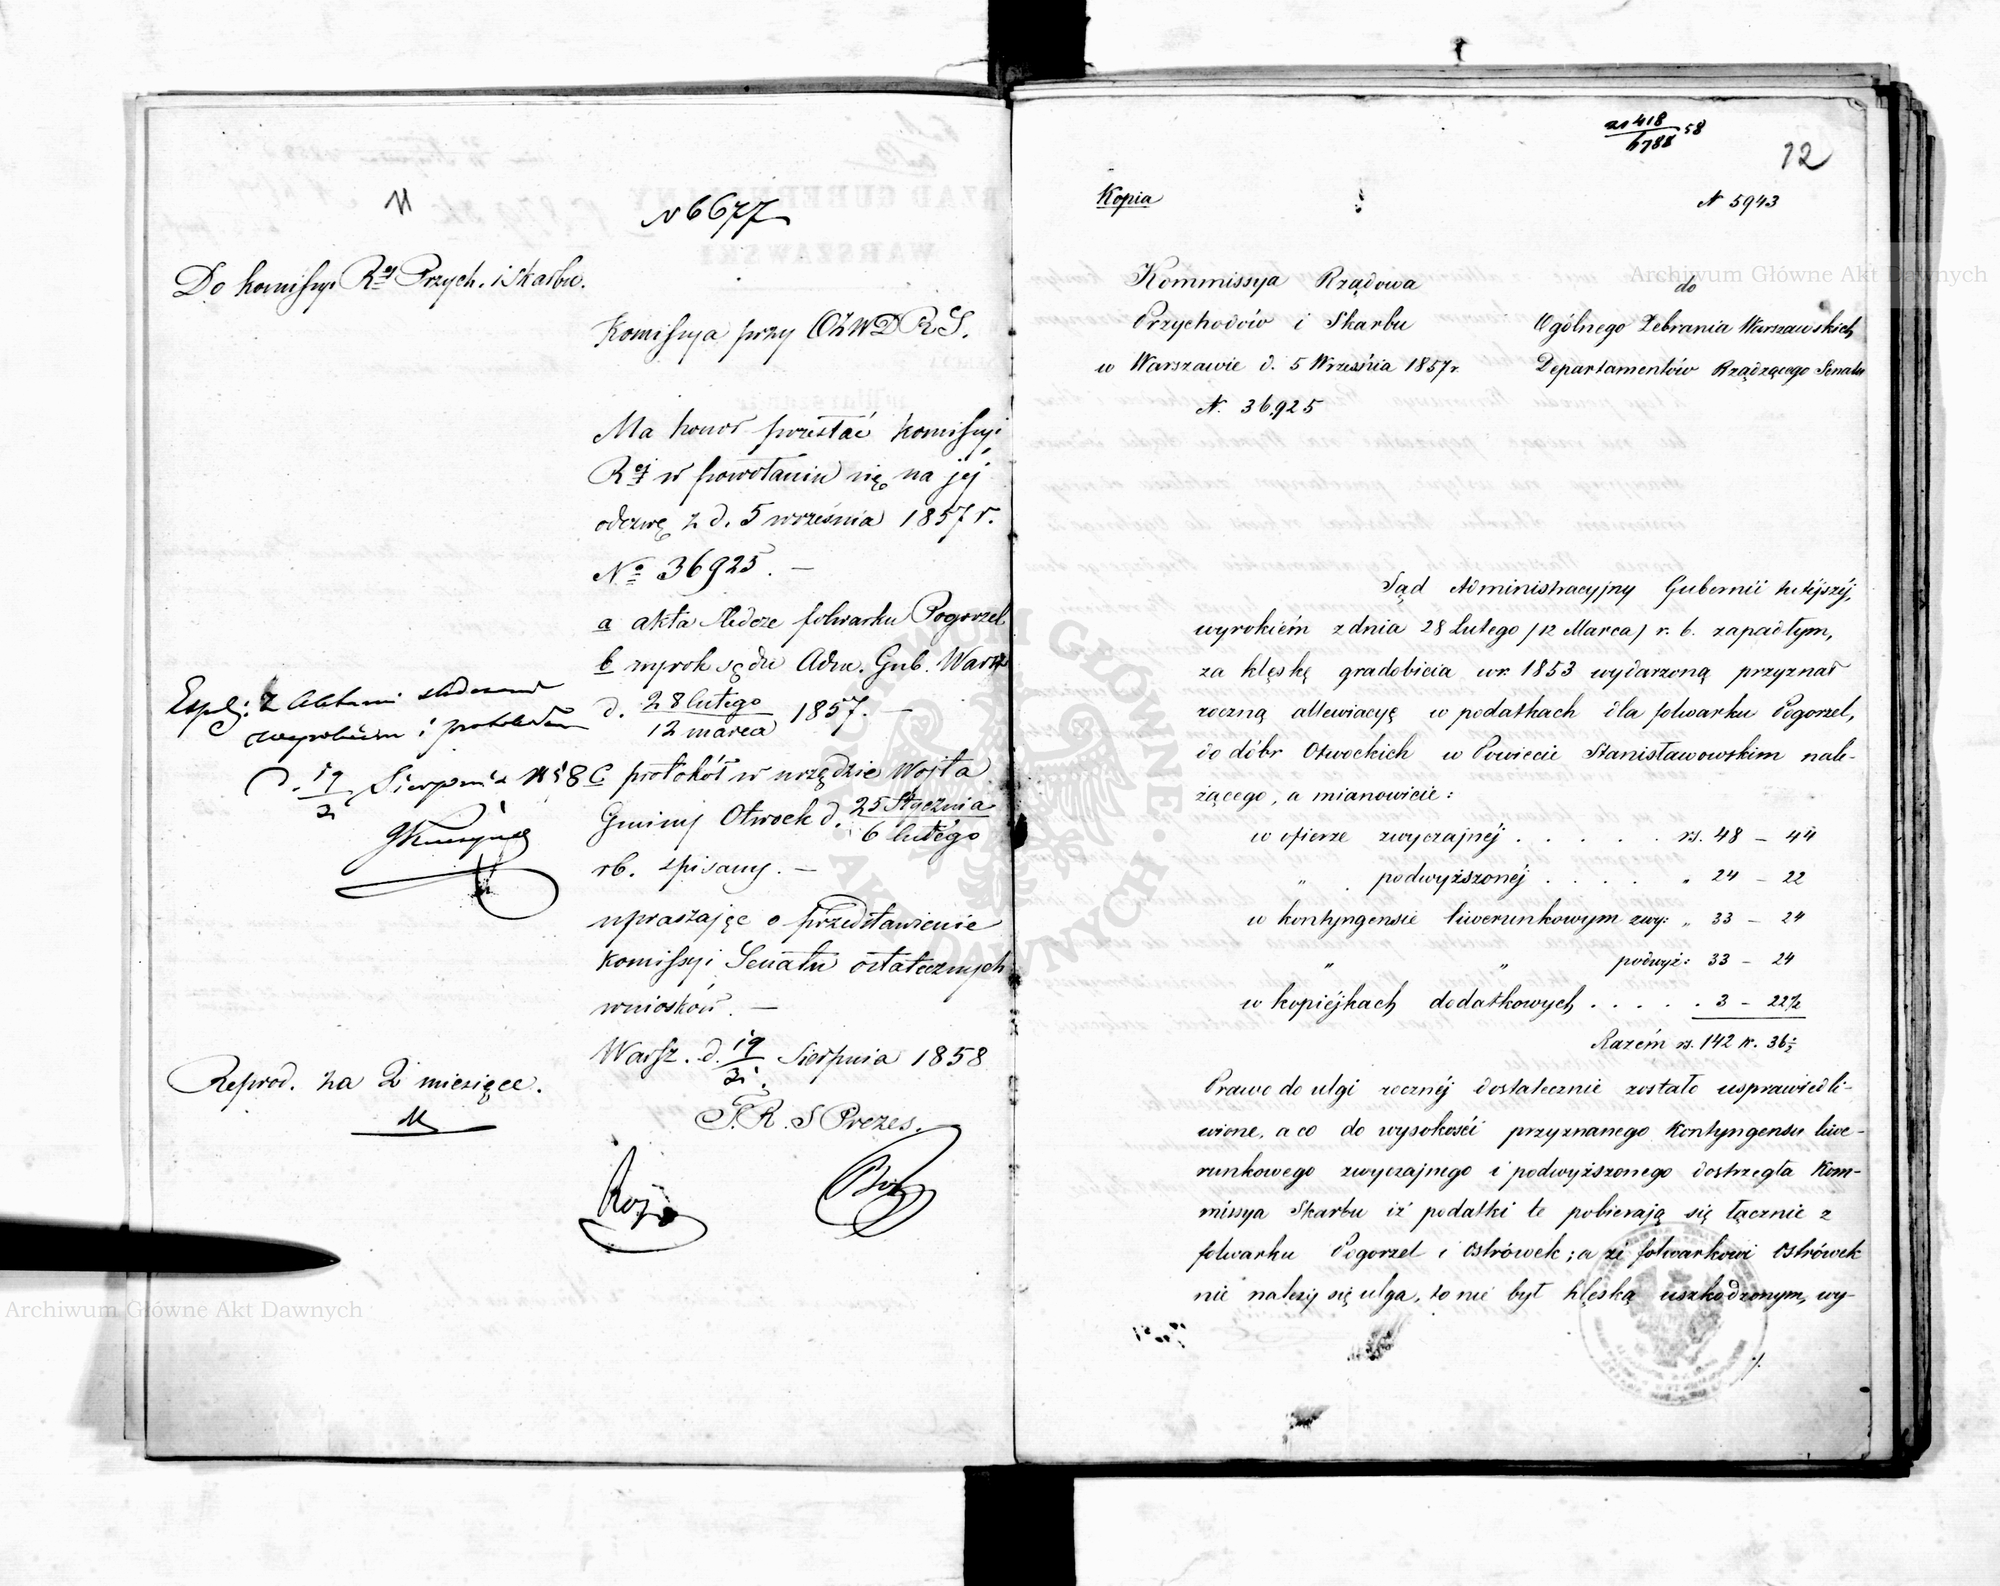 11
N 6677
Do Komissyi R^ej Przych. i Skarbu.
Komissya przy OZWDRS.
Ma honor przesłać Komissyi
R^ej w powołaniu się na jéj
odezwę z d. 5 września 1857 r.
N° 36925. —
a akta śledcze folwarku Pogorzel
b wyrok sądu Adm. Gub. Warsz
d. 28 lutego / 12 marca 1857. —
c protokół w urzędzie Wójta
Gminy Otwock d. 25 Stycznia / 6 lutego
rb. spisany. —
upraszając o przedstawienie
Komissyi Senatu ostatecznych
wniosków. —
Warsz. d. 19/31 Sierpnia 1858
P. R. S Prezes.
Exp: z Aktami śledczemi
wyrokiem i protokołem
d. 19/31 Sierpnia 1858
Reprod. za 2 miesiące.
418 / 6788 58
12
Kopia
N 5943
Kommissya Rządowa
Przychodów i Skarbu
w Warszawie d. 5 Września 1857 r.
N. 36,925
do
Ogólnego Zebrania Warszawskich
Departamentów Rządzącego Senatu
Sąd Administracyjny Gubernii tutejszéj,
wyrokiem z dnia 28 Lutego /12 Marca/ r. b. zapadłym,
za klęskę gradobicia w r. 1853 wydarzoną przyznał
roczną allewiacyę w podatkach dla folwarku Pogorzel,
do dóbr Otwockich w Powiecie Stanisławowskim nale-
żącego, a mianowicie:
w ofierze zwyczajnéj . . . . . rs. 48 – 44
„ . podwyższonéj . . . . „ 24 – 22
w kontyngensie liwerunkowym zwy: „ 33 – 24
„ „ podwyż: 33 – 24
w kopiéjkach dodatkowych . . . . . 3 – 22½
Razém rs. 142 k. 36½
Prawo do ulgi rocznéj dostatecznie zostało usprawiedli-
wione, a co do wysokości przyznanego Kontyngensu liwe-
runkowego zwyczajnego i podwyższonego dostrzegła Kom-
missya Skarbu iż podatki te pobierają się łącznie z
folwarku Pogorzel i Ostrówek; a że folwarkowi Ostrówek
nie należy się ulga, bo nie był klęską uszkodzonym, wy-
Archiwum Główne Akt Dawnych
Archiwum Główne Akt Dawnych
ARCHIWUM GŁÓWNE AKT DAWNYCH